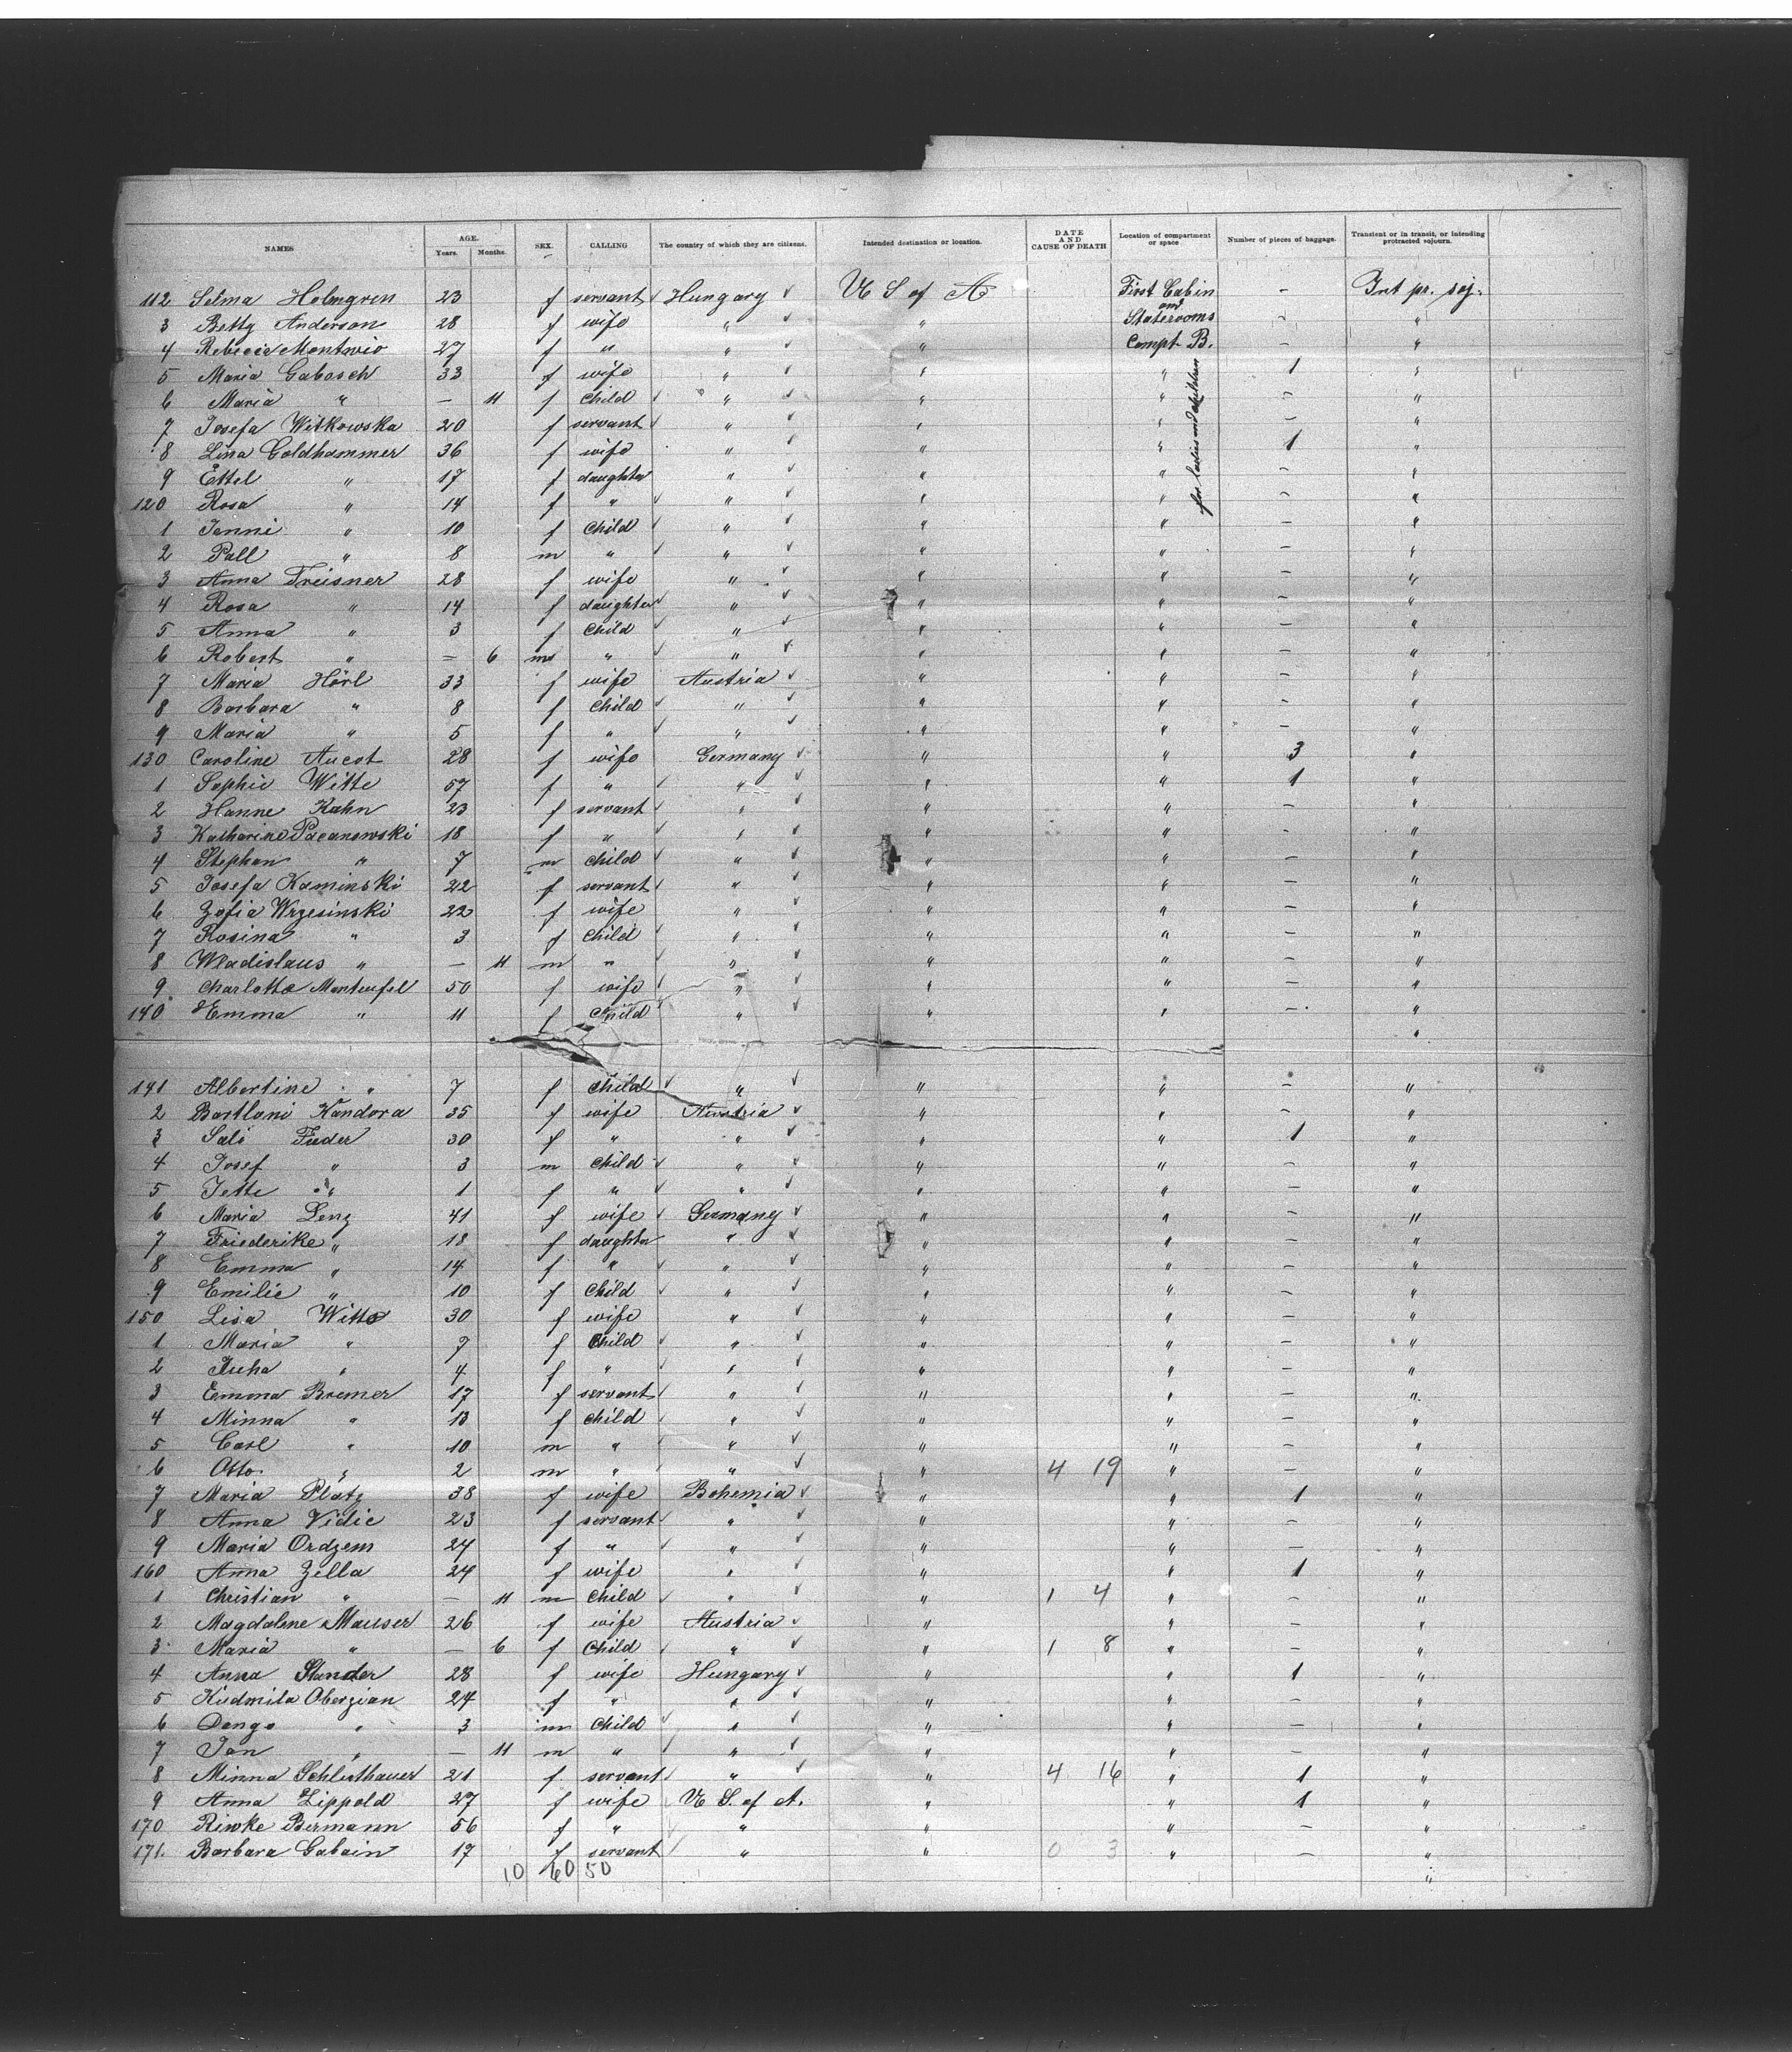 NAMES AGE. Years. Months. SEX. CALLING The country of which they are citizens. Intended destination or location. DATE AND CAUSE OF DEATH Location of compartment or space Number of pieces of baggage. Transient or in transit, or intending protracted sojourn.
112 Selma Holmgren 23 f servant ✓ Hungary ✓ U S of A First Cabin and – Int pr. soj.
3 Betty Anderson 28 f wife " ✓ " Staterooms – "
4 Rebecca Montwio 27 f " " ✓ " Compt B. – "
5 Maria Gabosch 33 f wife " ✓ " " for ladies and children 1 "
6 Maria " – 11 f child ✓ " ✓ " " – "
7 Josefa Witkowska 20 f servant ✓ " ✓ " " – "
8 Lina Goldhammer 36 f wife " ✓ " " 1 "
9 Ettel " 17 f daughter " ✓ " " – "
120 Rosa " 14 f " ✓ " ✓ " " – "
1 Janni " 10 f child ✓ " ✓ " " – "
2 Pall " 8 m " ✓ " ✓ " " – "
3 Anna Treisner 28 f wife " ✓ " " – "
4 Rosa " 14 f daughter ✓ " ✓ " " – "
5 Anna " 3 f child ✓ " ✓ " " – "
6 Robert " – 6 m " ✓ " ✓ " " – "
7 Maria Hörl 33 f wife Austria ✓ " " – "
8 Barbara " 8 f child ✓ " ✓ " " – "
9 Maria " 5 f " ✓ " ✓ " " – "
130 Caroline Aucot 28 f wife Germany ✓ " " 3 "
1 Sophie Witte 57 f " ✓ " ✓ " " 1 "
2 Hanne Kahn 23 f servant ✓ " ✓ " " – "
3 Katharina Pacanowski 18 f " ✓ " ✓ " " – "
4 Stephan " 7 m child ✓ " ✓ " " – "
5 Josefa Kaminski 22 f servant ✓ " ✓ " " – "
6 Zofia Wrzesinski 22 f wife " ✓ " " – "
7 Rosina " 3 f child ✓ " ✓ " " – "
8 Wladislaus " – 11 m " ✓ " ✓ " " – "
9 Charlotte Manteufel 50 f wife ✓ " ✓ " " – "
140 Emma " 11 f child ✓ " ✓ " " – "
"
141 Albertine " 7 f child ✓ " ✓ " " – "
2 Bartlani Kandora 35 f wife Austria ✓ " " – "
3 Sali Fuder 30 f " " ✓ " " 1 "
4 Josef " 3 m child ✓ " ✓ " " – "
5 Jette " 1 f " ✓ " ✓ " " – "
6 Maria Lenz 41 f wife ✓ Germany ✓ " " – "
7 Friederike " 18 f daughter " ✓ " " – "
8 Emma " 14 f " ✓ " ✓ " " – "
9 Emilie " 10 f child ✓ " ✓ " " – "
150 Lisa Witte 30 f wife " ✓ " " – "
1 Maria " 7 f child ✓ " ✓ " " – "
2 " 4 f " ✓ " ✓ " " – "
3 Emma Bremer 17 f servant ✓ " ✓ " " – "
4 Minna " 13 f child ✓ " ✓ " " – "
5 Carl " 10 m " ✓ " ✓ " " – "
6 Otto " 2 m " ✓ " ✓ " 4 19 " – "
7 Maria Platz 38 f wife Bohemia ✓ " " 1 "
8 Anna Vidic 23 f servant ✓ " ✓ " " – "
9 Maria Ordzem 24 f " ✓ " ✓ " " – "
160 Anna Zilla 24 f wife " ✓ " " 1 "
1 Christian " – 11 m child ✓ " ✓ " 1 4 " – "
2 Magdalene Mauser 26 f wife Austria ✓ " " – "
3 Maria " – 6 f child ✓ " ✓ " 1 8 " – "
4 Anna Stander 28 f wife Hungary ✓ " " 1 "
5 Kudmila Oberzian 24 f " " ✓ " " – "
6 " 3 m child ✓ " ✓ " " – "
7 Jan " – 11 m " ✓ " ✓ " " – "
8 Minna Schleithauer 21 f servant ✓ " ✓ " 4 16 " 1 "
9 Anna Lippold 27 f wife U S. of A. " " 1 "
170 Riwke Bermann 56 f " ✓ " " " – "
171. Barbara Gabain 17 f servant ✓ " " 0 3 " – "
10 60 50 "